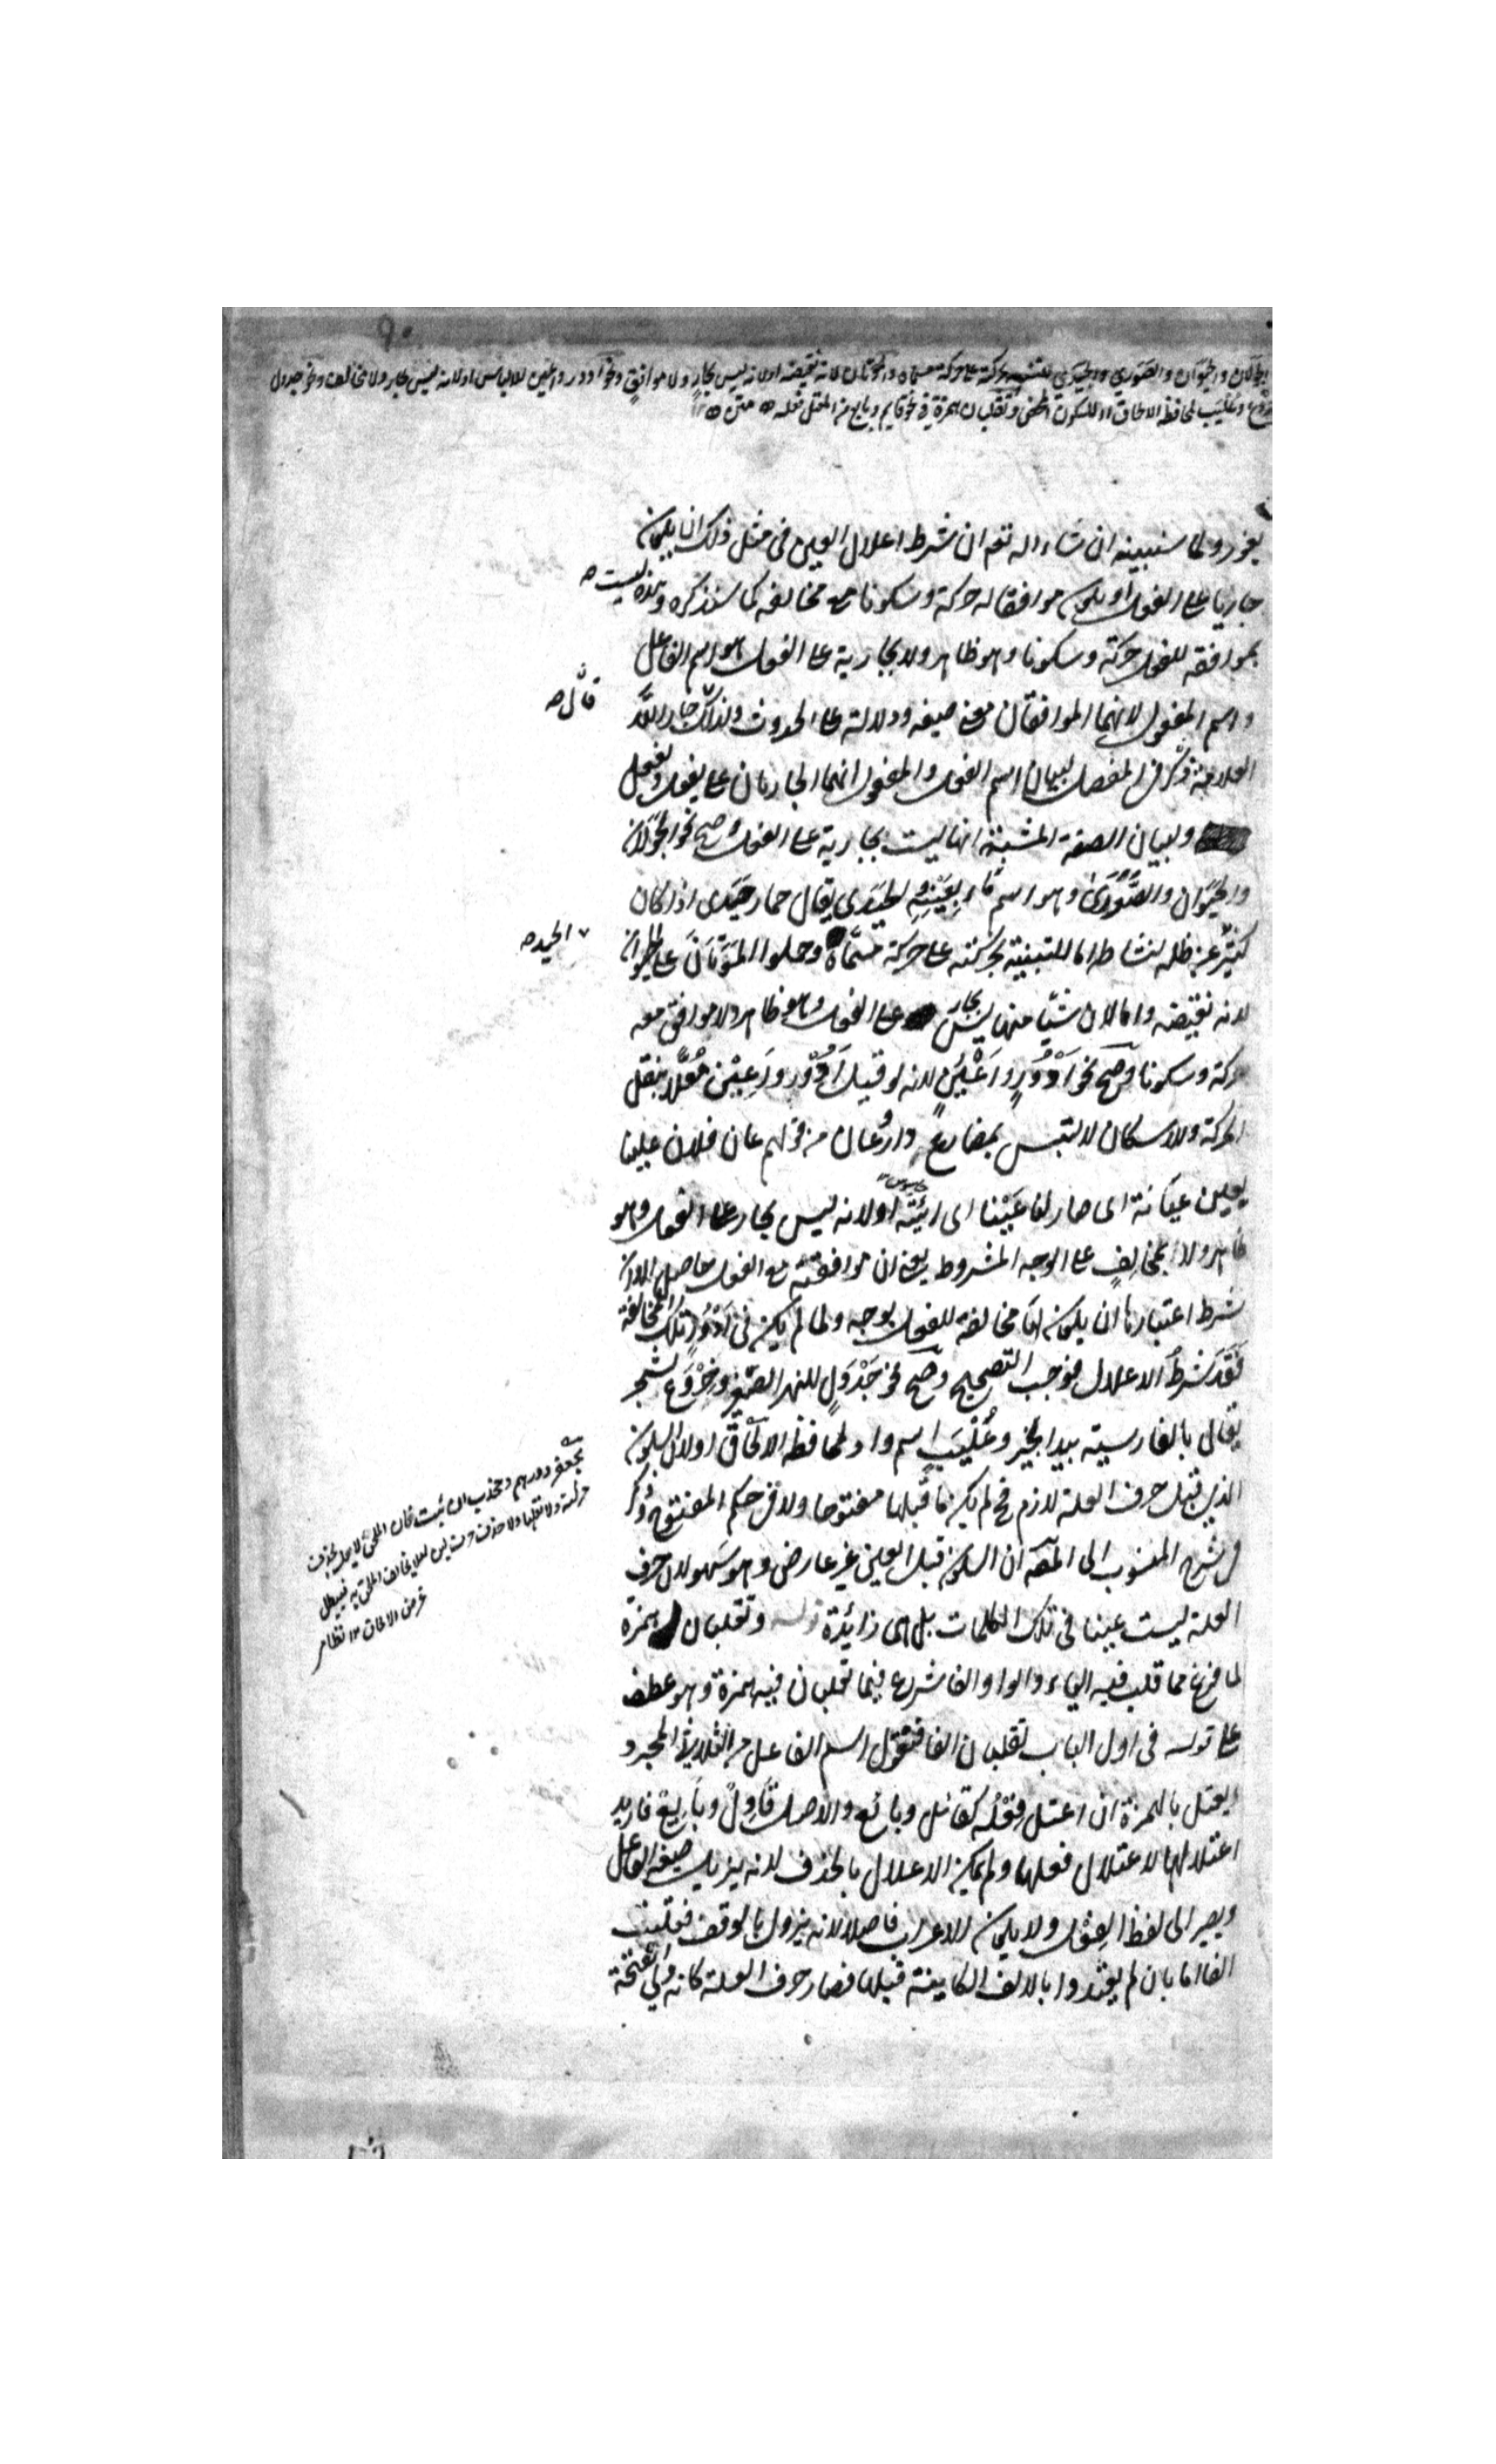 ٩٠
الجولان والحيوان والصورى والحيدى للتنبيه بحركته على حركة مسماه والموتان لانه نقيضه اولانه ليس بجار ولا موافق ونحو ادور واعين للالباس اولانه ليس بجار ولا مخالف ونحو جدول
وخروع وعليب لمحافظة الالحاق او للسكون المحض وتقلبان همزة فى نحو قايم وبايع من المعتل فعله متن ١٢
يغزو ولما سنبينه ان شاء الله تعم ان شرط اعلال العين فى مثل ذلك ان يكون
جاريا على الفعل او يكون موافقا له حركة وسكونا مع مخالفة كما سنذكره وهذه ليست
بموافقه للفعل حركة وسكونا وهو ظاهر ولا بجارية على الفعل هو اسم الفاعل
واسم المفعول لانهما الموافقان معنى صيغه ودلالة على الحدوث ولذلك جار الله
قال
العلامة ذكر فى المفصل لبيان اسم الفعل والمفعول انهما الجاريان على يفعل ويفعل
ولبيان الصفة المشبهة انها ليست بجارية على الفعل وصح نحو الجولان
والحيوان والصورى وهو اسم ماء بعينه والحيدى يقال حمار حيدى اذا كان
كثير عن ظله لنشاط اما للتنبيه بحركته على حركة مسماه وحملوا الموتان على الحيوان
الحيد
لانه نقيضه واما لان شيئا منها ليس بجار على الفعل وهو ظاهر ولا موافق معه
حركة وسكونا وصح نحو ادور واعين لانه لو قيل ادور واعين معلا بنقل
الحركة والاسكان لالتبس بمضارع دار وعان من قولهم عان فلان علينا
يعين عيانة اى صار لنا عينا اى ربيئة اولانه ليس بجار على الفعل وهو
جاسوس
ظاهر ولا بمخالف على الوجه المشروط يعنى ان موافقته مع الفعل حاصل الا ان
شرط اعتبارها ان يكون لها مخالفة للفعل بوجه ولما لم يكن فى ادور تلك المخالفة
فقد شرط الاعلال فوجب التصحيح وصح نحو جدول للنهر الصغير وخروع لشجر
يقال بالفارسية بيد انجير وعليب اسم واد لمحافظة الالحاق اولان السكون
الذى قبل حرف العلة لازم فح لم يكن ما قبلها مفتوحا ولا فى حكم المفتوح وذكر
فى شرح المنسوب الى المص ان السكون قبل العين غير عارض وهو سهو لان حرف
العلة ليست عينا فى تلك الكلمات بل هى زائدة قوله وتقلبان همزة
لما فرغ مما قلب فيه الياء والواو الفا شرع فيما تقلبان فيه همزة وهو عطف
على قوله فى اول الباب تقلبان الفا فنقول اسم الفاعل من الثلاثى المجرد
يعتل بالهمزة ان اعتل فعله كقائل وبائع والاصل قاول وبايع فاريد
اعتلالها لاعتلال فعلها ولم يمكن الاعلال بالحذف لانه يزيل صيغة الفاعل
ويصير الى لفظ الفعل ولا يكون الاعراب فاصلا لانه يزول بالوقف فقلبت
الفا اما بان لم يعتدوا بالالف الكاينة قبلها فصار حرف العلة كانه ولى الفتحة
بجعفر ودرهم وجخدب ان ثبت فان الملحق لا يعل بحذف
حركة ولا نقلها ولا حذف حرف لئلا يخالف الملحق به فيبطل
غرض الالحاق ١٢ نظام